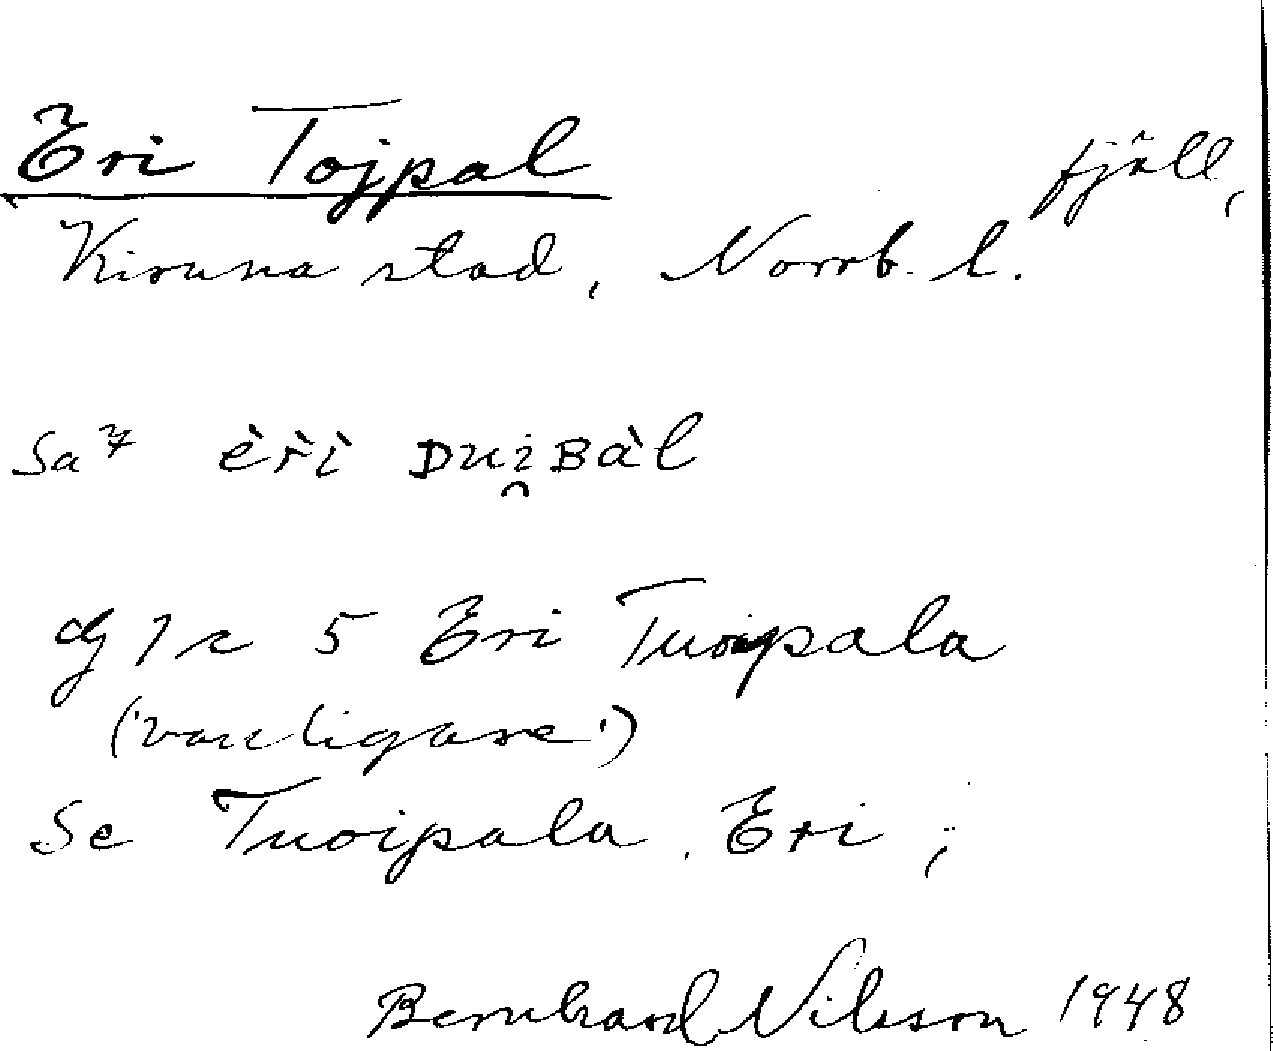 Eri Tojpal fjäll,
Kiruna stad, Norrb. l.
Sa èr̀ì Duị̯Bàl
1 c 5 Eri Tuoipala
('vanligare')
Se Tuoipala, Eri ;
Bernhard Nilsson 1948